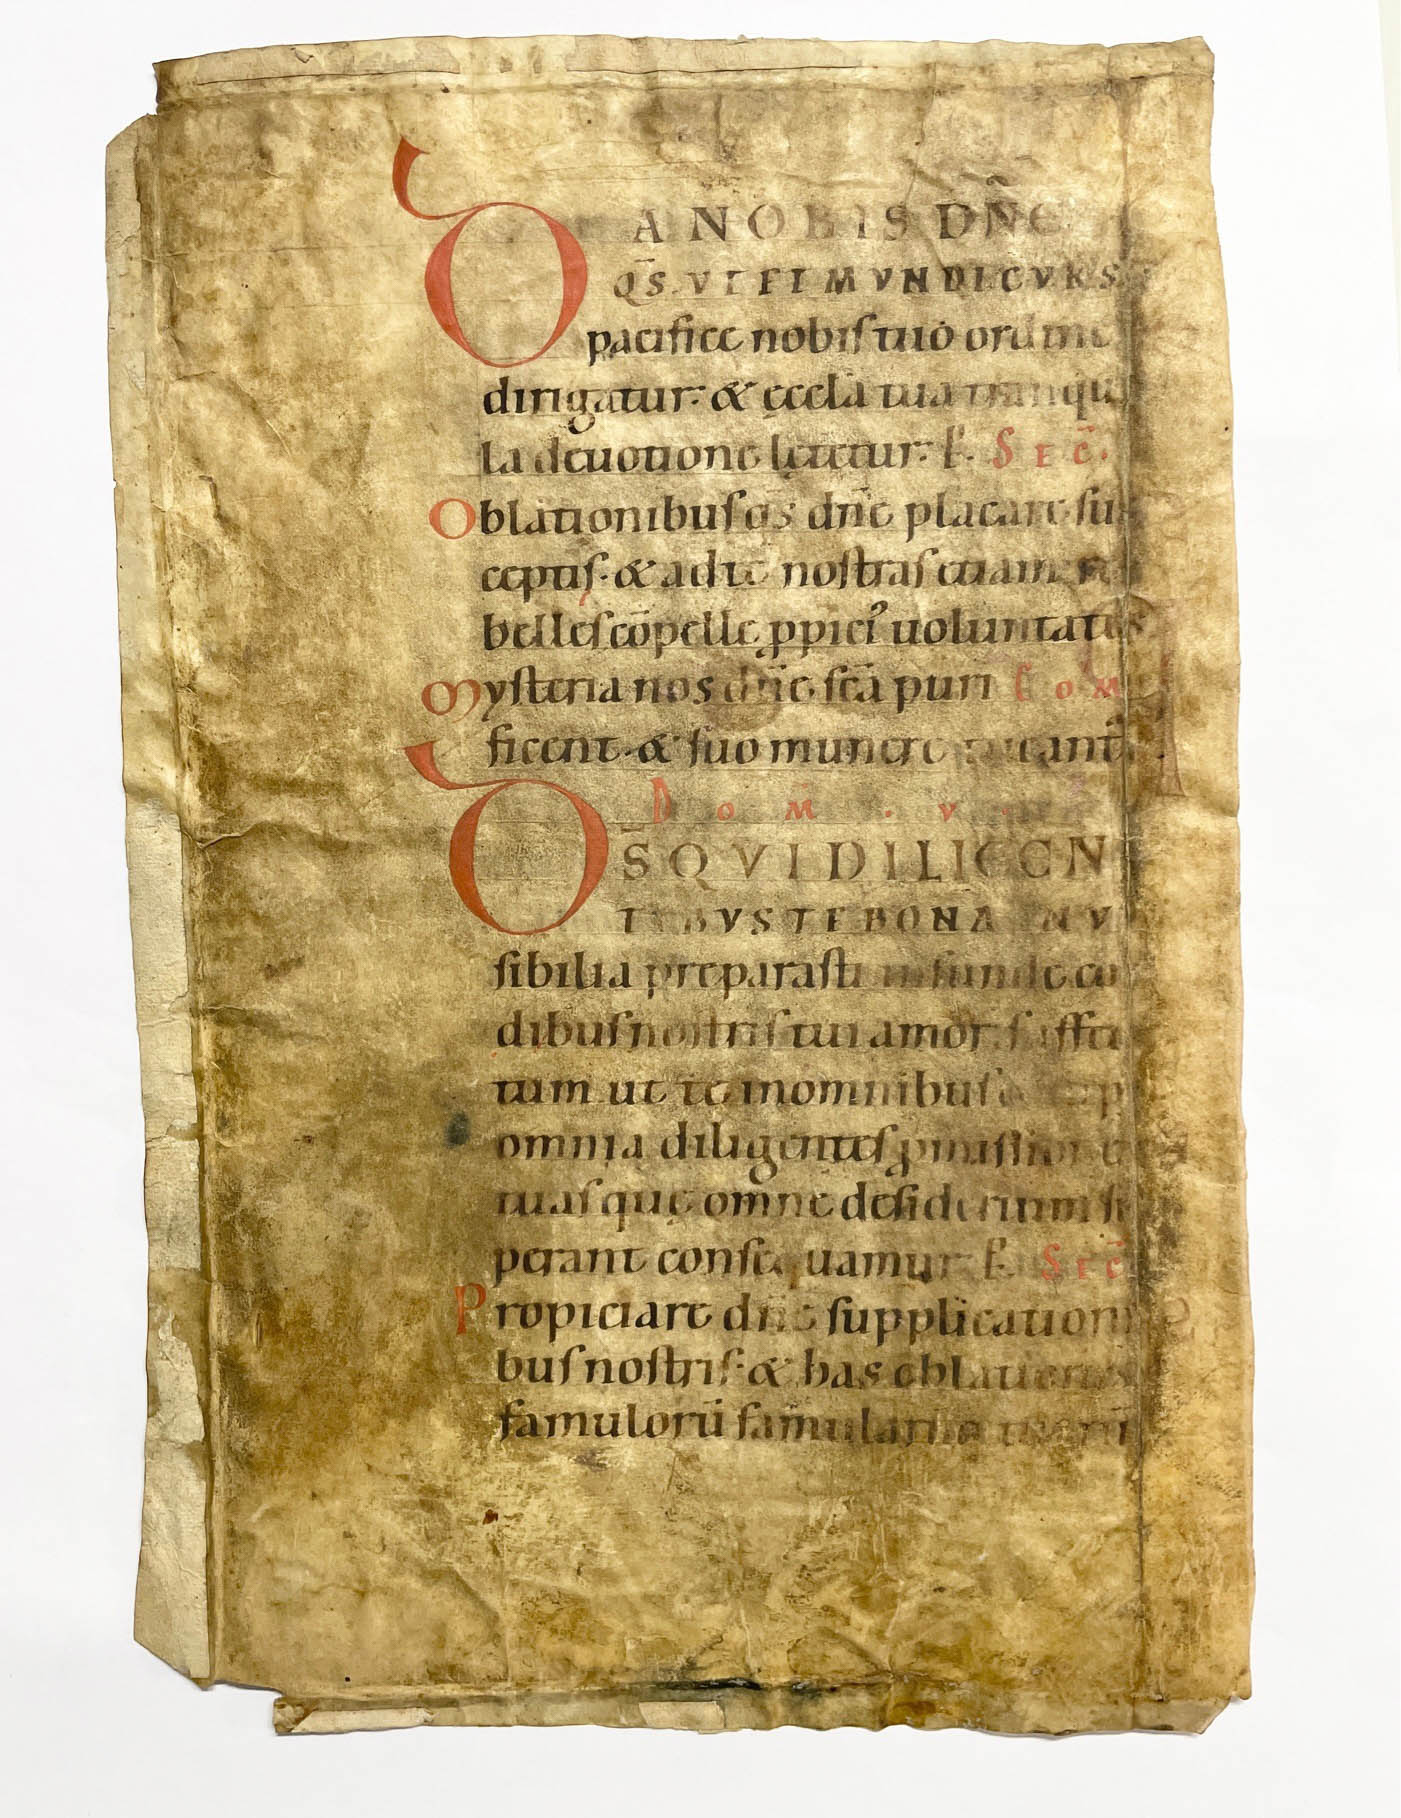 DA NOBIS DN̄E
QS̄. VT ET MVNDI CVRSꝰ
pacifice nobis tuo ordine
dirigatur· & ęccla tua tranqui
la deuotione lętetur· P. SEC̄.
Oblationibus q̄s dn̄e placare sus
ceptis· & ad te nostras etiam re
belles cōpelle ꝓpici' uoluntates
Mysteria nos dn̄e sc̄a puri COM
ficent· & suo munere tueant'
DOM̄ . V .
DS̄ QVI DILIGEN
TIBVS TE BONA INVI
sibilia preparasti infunde cor
dibus nostris tui amoris affec
tum ut te in omnibus & sup
omnia diligentes ꝓmissiones
tuas quę omne desiderium su
perant consequamur P. SEC̄
Propiciare dn̄e supplicationi
bus nostris· & has oblationes
famulorū famularūq tuarū